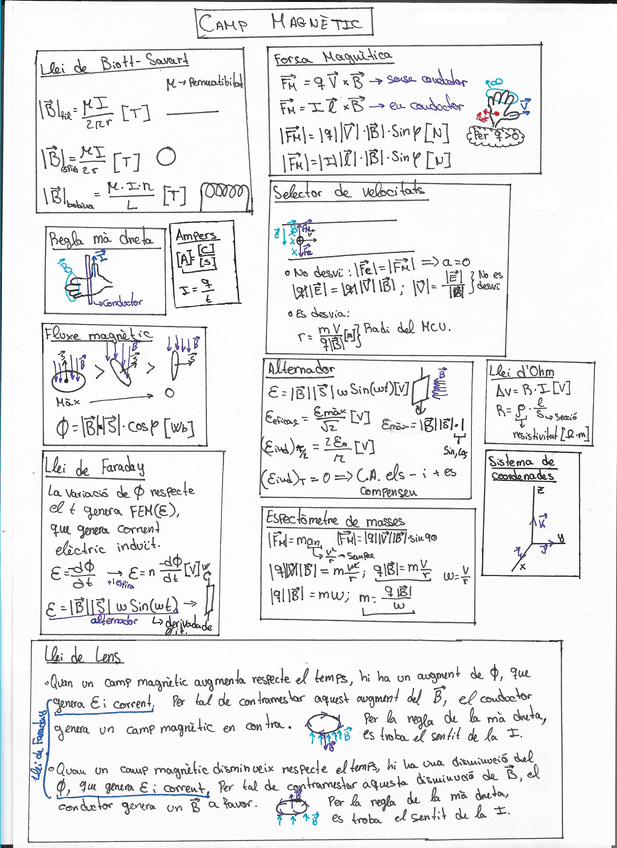 CAMP MAGNÈTIC
Llei de Biott-Savart
M → Permeabilitat
|B⃗|fil = MI/2πr [T]
|B⃗|espira = MI/2r [T]
|B⃗|bobina = M·I·n/L [T]
Forsa Magnètica
F⃗M = q V⃗ × B⃗ → sense conductor
F⃗M = I l⃗ × B⃗ → en conductor
|F⃗M| = |q| |V⃗| · |B⃗| · Sin φ [N]
|F⃗M| = |I| |l⃗| · |B⃗| · Sin φ [N]
Per q>0
Regla mà dreta
B⃗
I⃗
→ conductor
Ampers
[A] = [C]/[s]
I = q/t
Selector de velocitats
• No desvi: |F⃗e| = |F⃗M| ⟹ a=0
|q||E⃗| = |q||V⃗||B⃗| ; |V⃗| = |E⃗|/|B⃗| } No es desvi
• Es desvia:
r = mV/q|B⃗| [m] } Radi del MCU.
Fluxe magnètic
Màx → 0
Φ = |B⃗|·|S⃗| · cos φ [Wb]
Alternador
Ɛ = |B⃗||S⃗| w Sin(wt) [V]
Ɛeficaç = Ɛmàx/√2 [V]
Ɛmàx = |B⃗||S⃗| · 1
Sin, Cos
(Ɛind)T/2 = 2Ɛo/π [V]
(Ɛind)T = 0 ⟹ C.A. els - i + es
compensen
Llei d'Ohm
ΔV = R · I [V]
R = ρ · l/S → Secció
resistivitat [Ω·m]
Llei de Faraday
La variació de Φ respecte
el t genera FEM(Ɛ),
que genera corrent
elèctric induït.
Ɛ = -dΦ/dt → +1 espira Ɛ = n -dΦ/dt [V]
Ɛ = |B⃗||S⃗| w Sin(wt) →
alternador
↳ derivada de
Espectòmetre de masses
|F⃗M| = m an |F⃗M| = |q||V⃗||B⃗| · sin 90
↳ v²/r → Sempre
|q||V⃗||B⃗| = m v²/r ; q|B⃗| = m V/r w = V/r
|q||B⃗| = m w ; m = q|B⃗|/w
Sistema de
coordenades
z
k⃗
y
x
Llei de Lens
• Quan un camp magnètic augmenta respecte el temps, hi ha un augment de Φ, que
genera Ɛ i corrent. Per tal de contrarestar aquest augment del B⃗, el conductor
genera un camp magnètic en contra. Per la regla de la mà dreta,
es troba el sentit de la I.
Llei de Faraday
• Quan un camp magnètic disminueix respecte el temps, hi ha una disminució del
Φ, que genera Ɛ i corrent. Per tal de contrarestar aquesta disminució de B⃗, el
conductor genera un B⃗ a favor. Per la regla de la mà dreta,
es troba el sentit de la I.